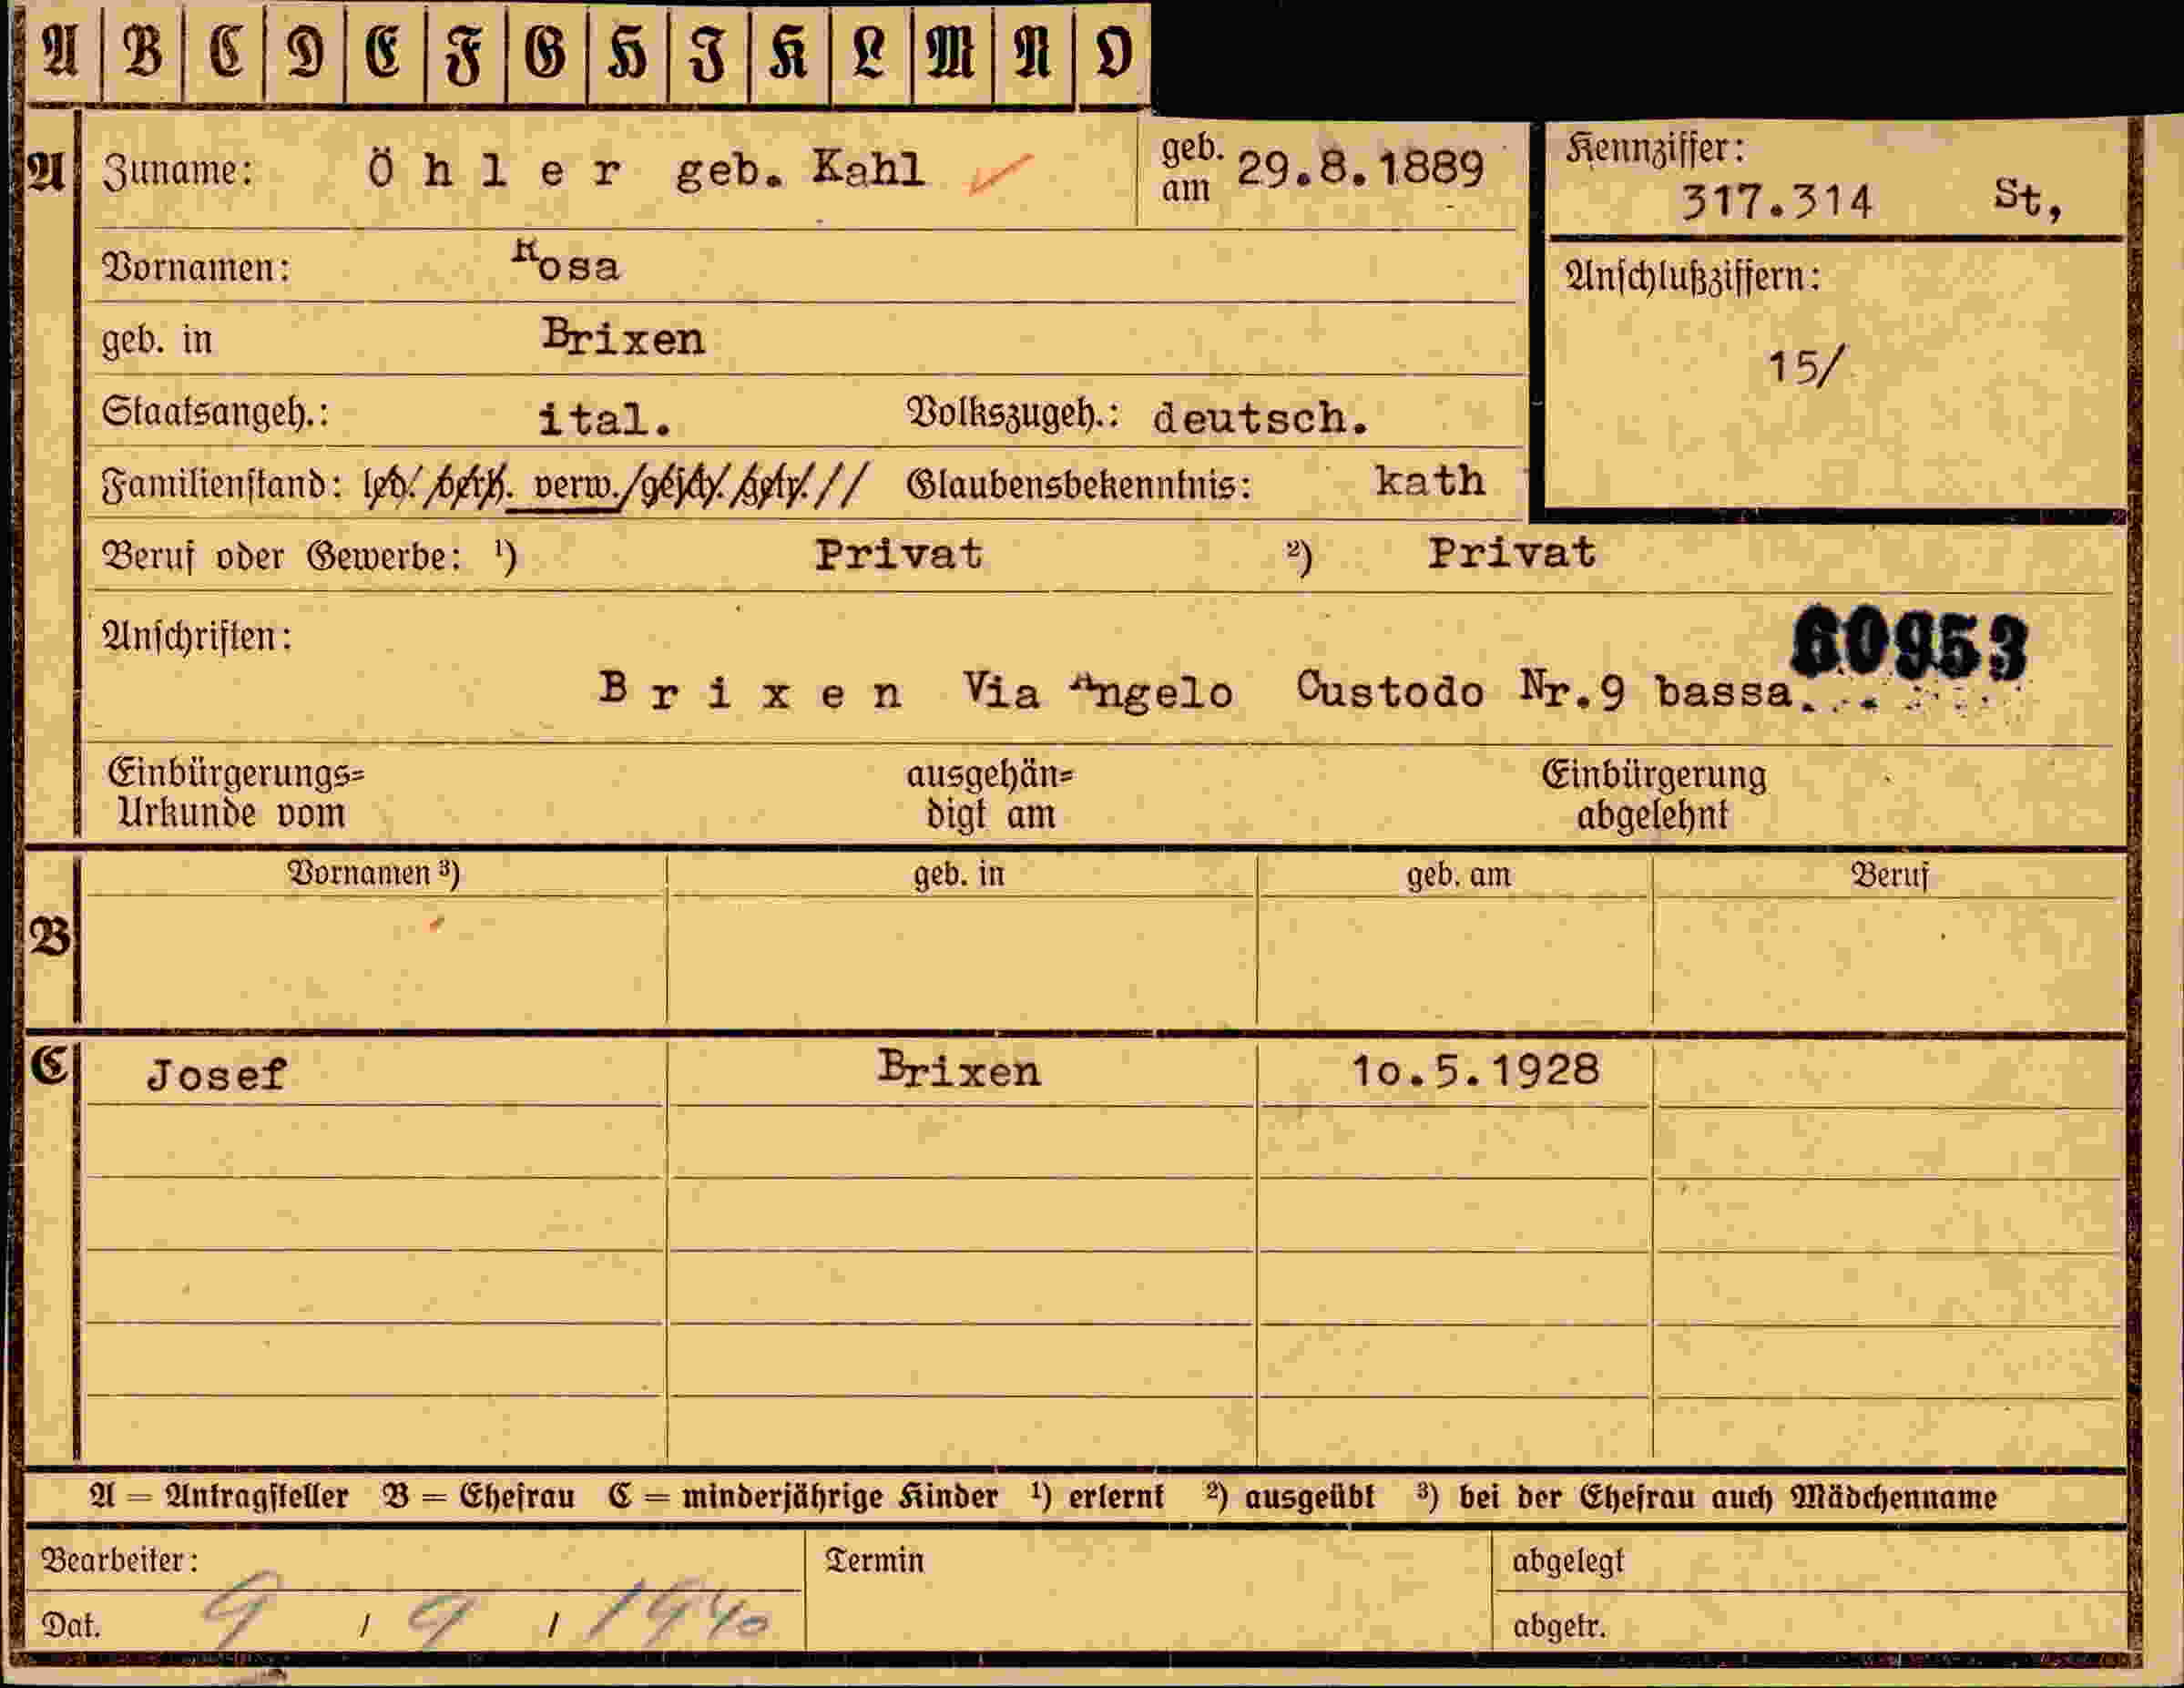 A B C D E F G H I K L M N O
A Zuname: Öhler geb. Kahl geb. am 29.8.1889
Kennziffer: 317.314 St,
Vornamen: Rosa
Anschlußziffern: 15/
geb. in Brixen
Staatsangeh.: ital. Volkszugeh.: deutsch.
Familienstand: led./verh. verw./gesch./getr.// Glaubensbekenntnis: kath
Beruf oder Gewerbe: ¹) Privat ²) Privat
60953
Anschriften:
Brixen Via Angelo Custodo Nr.9 bassa.
Einbürgerungs= ausgehän= Einbürgerung
Urkunde vom digt am abgelehnt
Vornamen ³) geb. in geb. am Beruf
B
C Josef Brixen 1o.5.1928
A = Antragsteller B = Ehefrau C = minderjährige Kinder ¹) erlernt ²) ausgeübt ³) bei der Ehefrau auch Mädchenname
Bearbeiter: Termin abgelegt
Dat. 9 / 9 / 1940 abgetr.